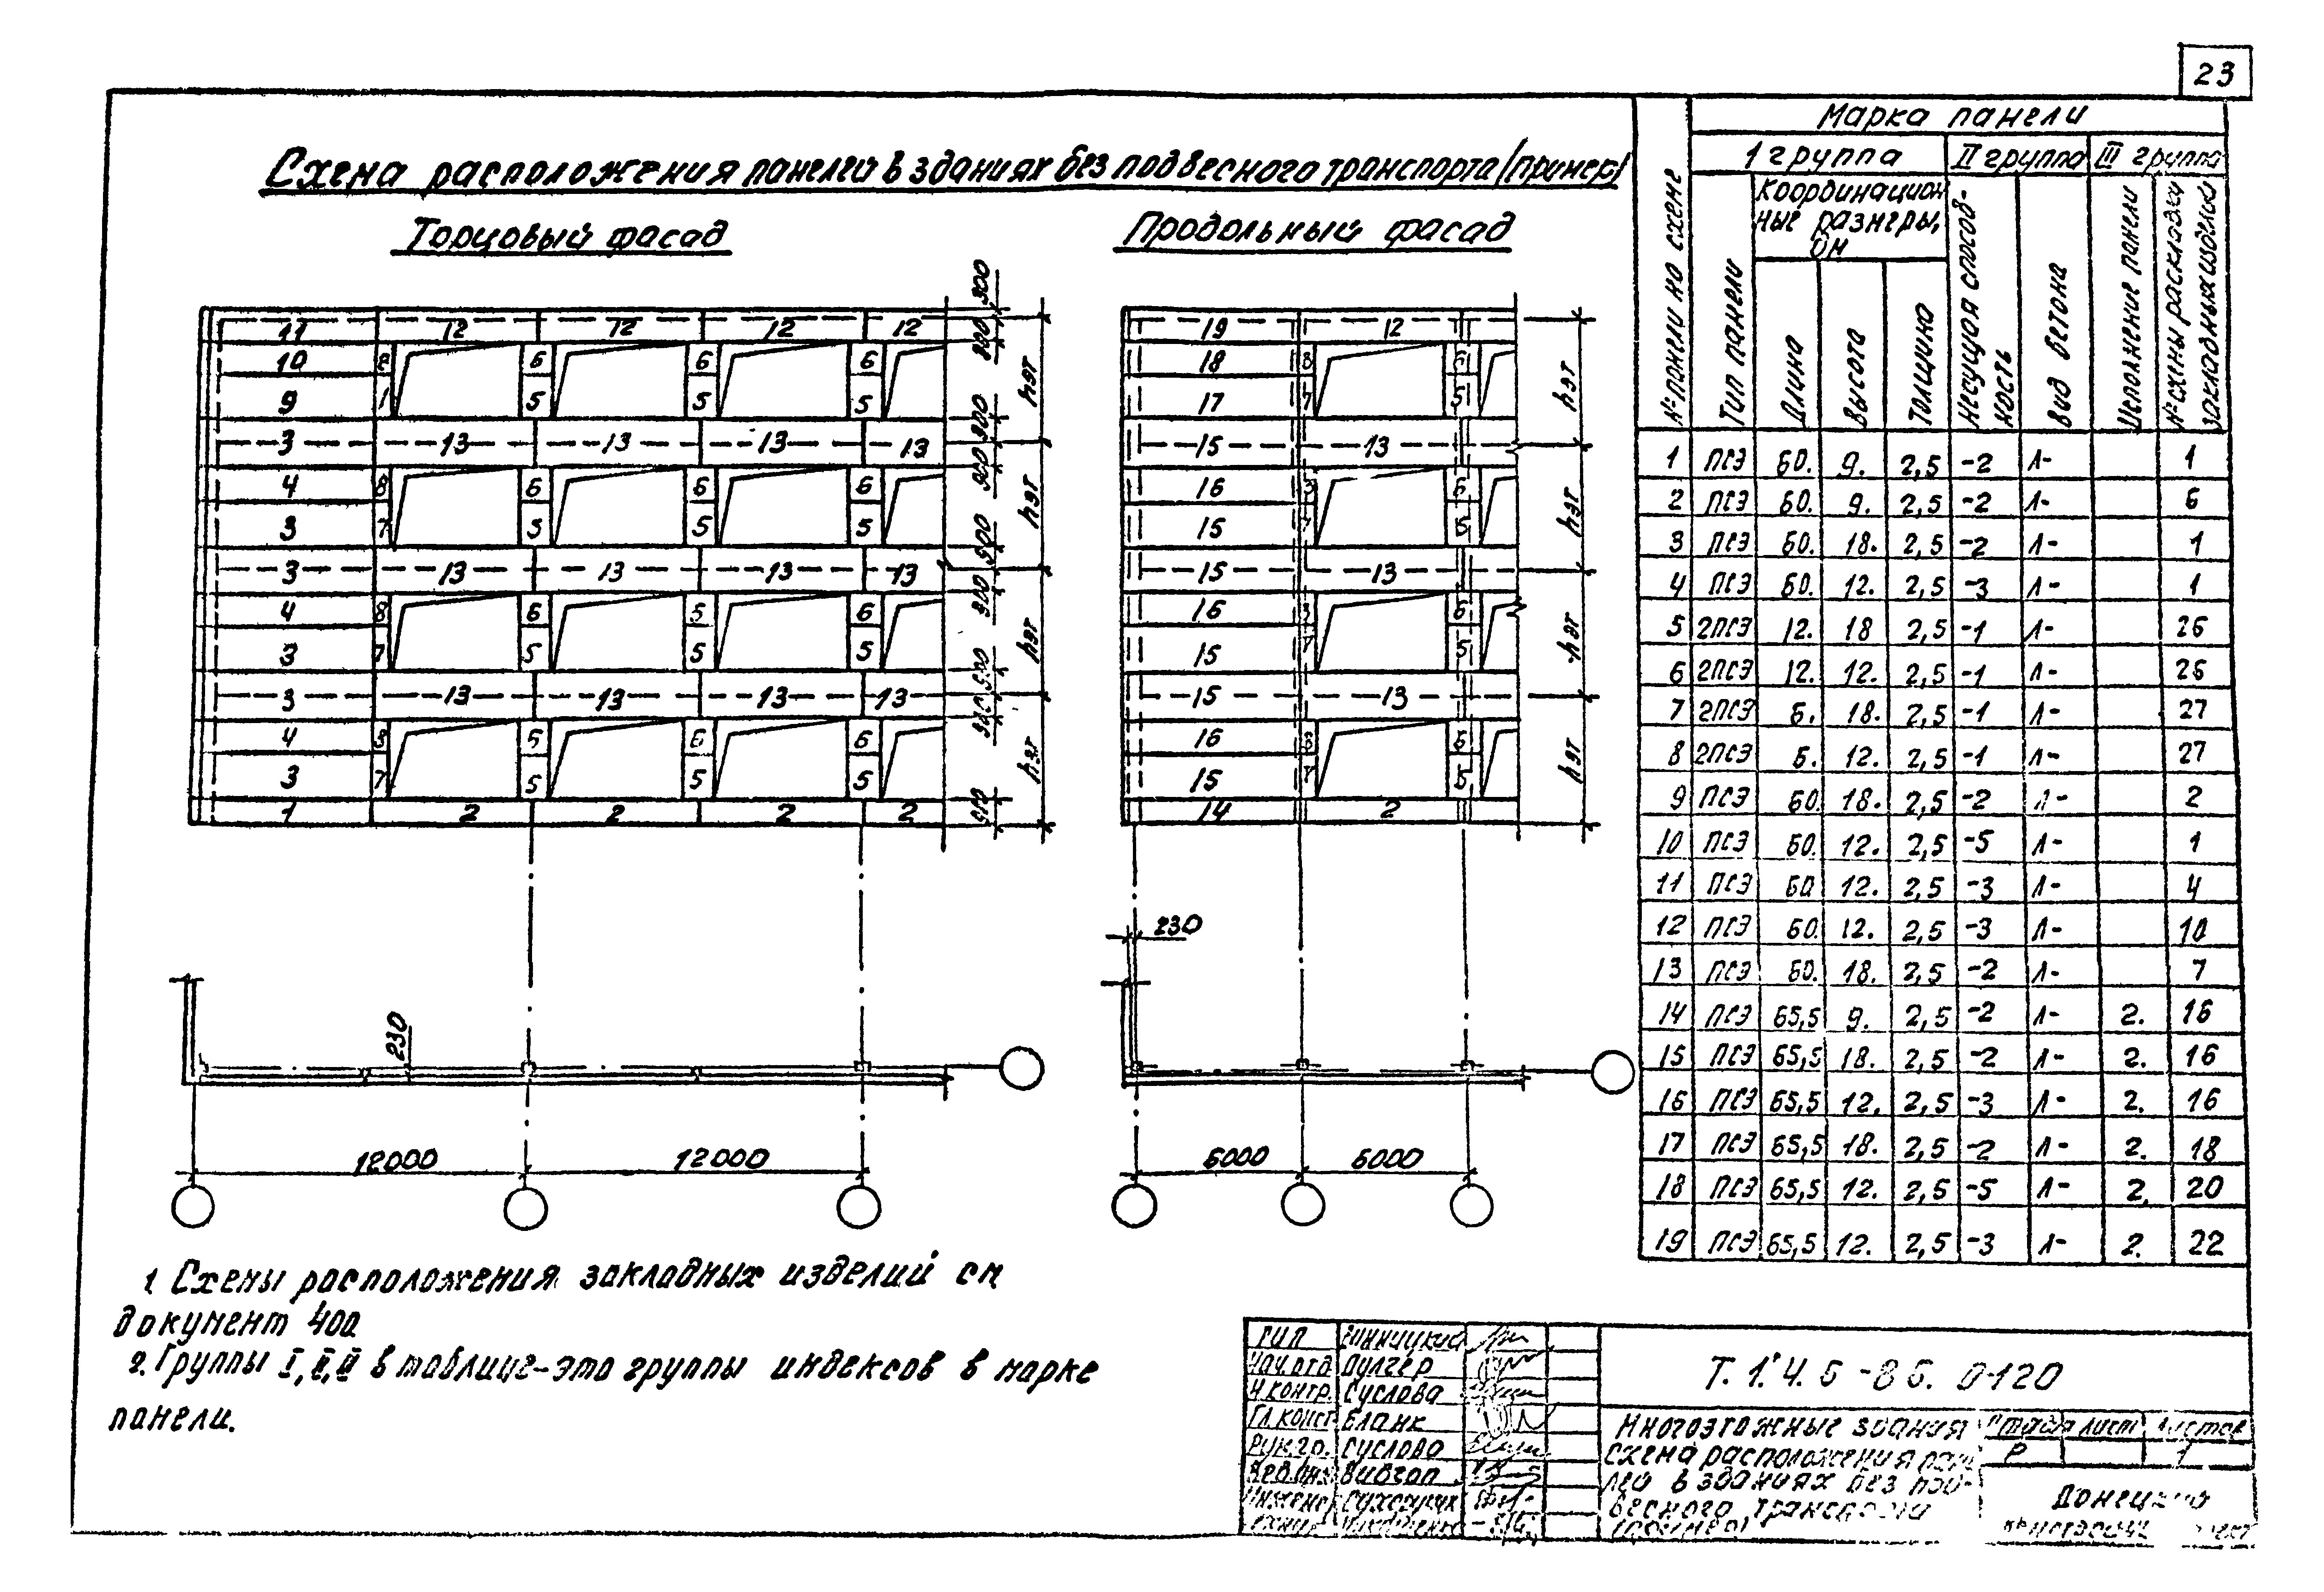 23
Схема расположения панелей в зданиях без подвесного транспорта (пример)
Торцовый фасад
Продольный фасад
300
11 12 12 12 12
900
10 2 6 6 6
hэт
9 1 5 5 5
900
3 13 13 13 13
900
4 8 6 6 6
hэт
3 7 5 5 5
900
3 13 13 13 13
900
4 8 6 5 6
hэт
3 7 5 5 5
900
3 13 13 13 13
900
4 8 5 6 6
hэт
3 7 5 5 5
900
1 2 2 2 2
19 12
18 8 6
hэт
17 7 5
15 13
16 8 6
hэт
15 7 5
15 13
16 8 6
hэт
15 7 5
15 13
16 8 6
hэт
15 7 5
14 2
230
230
12000 12000
6000 6000
Марка панели
I группа II группа III группа
№ панели на схеме
Тип панели
Координацион
ные размеры,
дм
Длина
Высота
Толщина
Несущая способ-
ность
Вид бетона
Исполнение панели
№ схемы раскладки
закладных изделий
1 ПСЭ 60. 9. 2,5 -2 Л- 1
2 ПСЭ 60. 9. 2,5 -2 Л- 6
3 ПСЭ 60. 18. 2,5 -2 Л- 1
4 ПСЭ 60. 12. 2,5 -3 Л- 1
5 2ПСЭ 12. 18 2,5 -1 Л- 26
6 2ПСЭ 12. 12. 2,5 -1 Л- 26
7 2ПСЭ 6. 18. 2,5 -1 Л- 27
8 2ПСЭ 6. 12. 2,5 -1 Л- 27
9 ПСЭ 60. 18. 2,5 -2 Л- 2
10 ПСЭ 60. 12. 2,5 -5 Л- 1
11 ПСЭ 60 12. 2,5 -3 Л- 4
12 ПСЭ 60. 12. 2,5 -3 Л- 10
13 ПСЭ 60. 18. 2,5 -2 Л- 7
14 ПСЭ 65,5 9. 2,5 -2 Л- 2. 16
15 ПСЭ 65,5 18. 2,5 -2 Л- 2. 16
16 ПСЭ 65,5 12. 2,5 -3 Л- 2. 16
17 ПСЭ 65,5 18. 2,5 -2 Л- 2. 18
18 ПСЭ 65,5 12. 2,5 -5 Л- 2. 20
19 ПСЭ 65,5 12. 2,5 -3 Л- 2. 22
1. Схемы расположения закладных изделий см
документ 400
2. Группы I, II, III в таблице-это группы индексов в марке
панели.
ГИП
Нач.отд. Пулгер
Н.контр. Суслова
Гл.конст. Бланк
Рук.гр. Суслова
Т.1.4.6-86.0-120
Многоэтажные здания
Схема расположения пане
лей в зданиях без под-
весного транспорта
(пример)
Стадия Лист Листов
Р 1
Донецкий